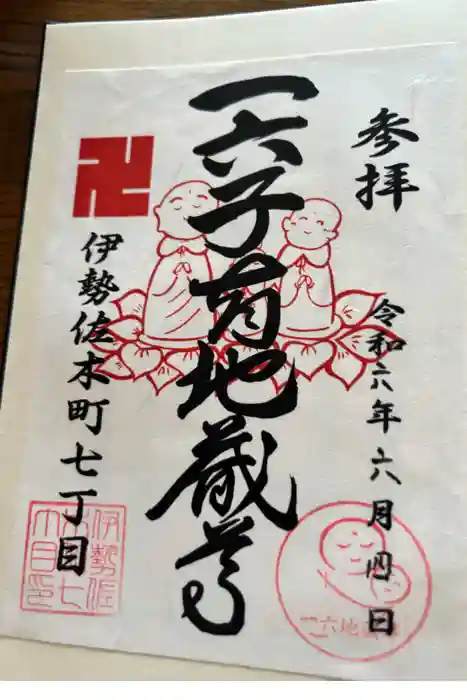 参拝
令和六年六月四日
一六子育地蔵尊
卍
伊勢佐木町七丁目
伊勢佐
木七
丁目印
一六地